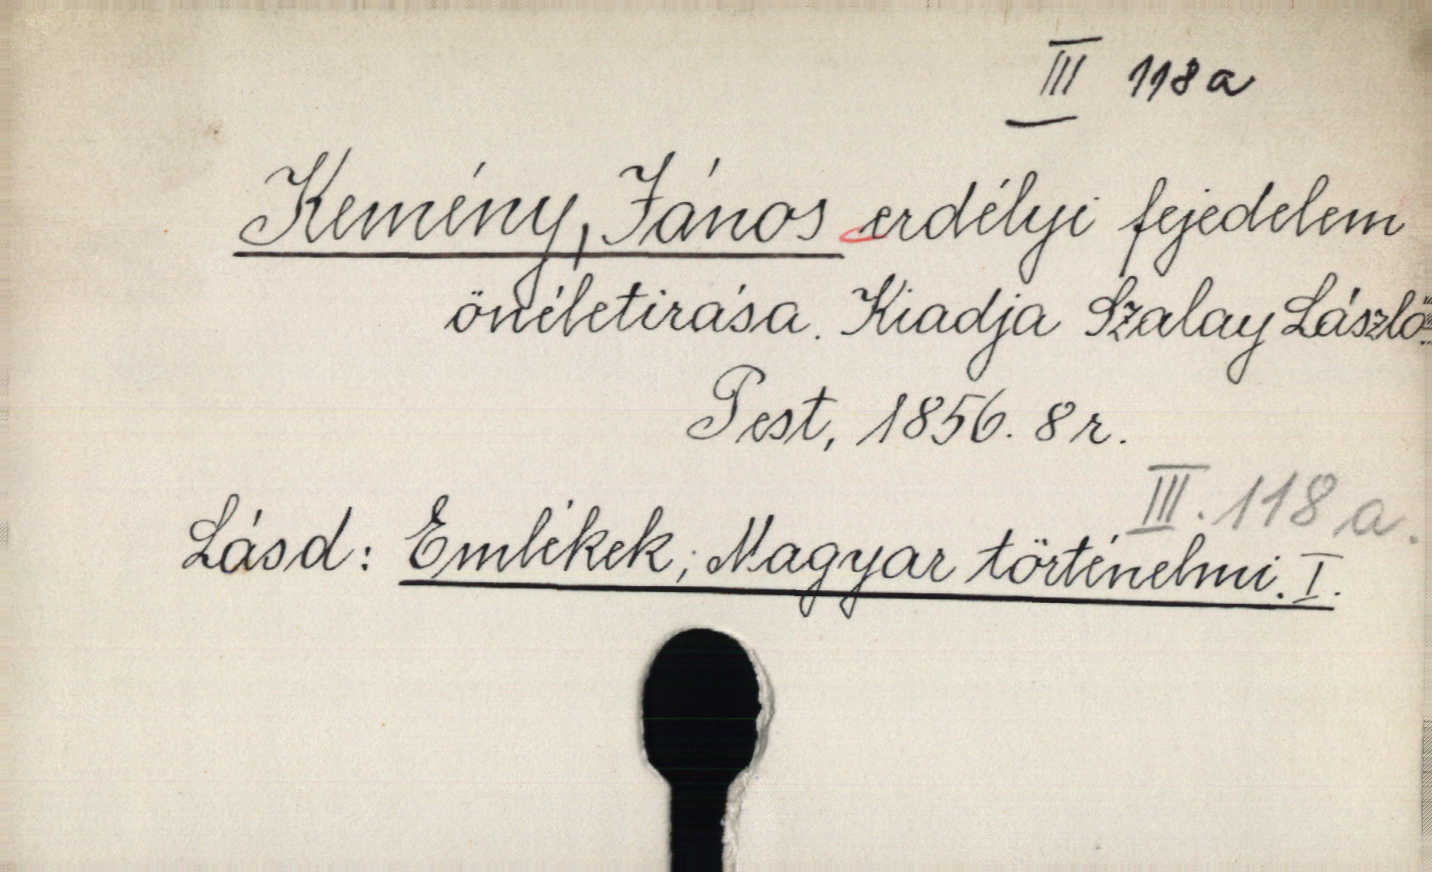 III 118 a
Kemény, János erdélyi fejedelem
önéletirása. Kiadja Szalay László
Pest, 1856. 8 r.
III. 118 a.
Lásd: Emlékek, Magyar történelmi. I.